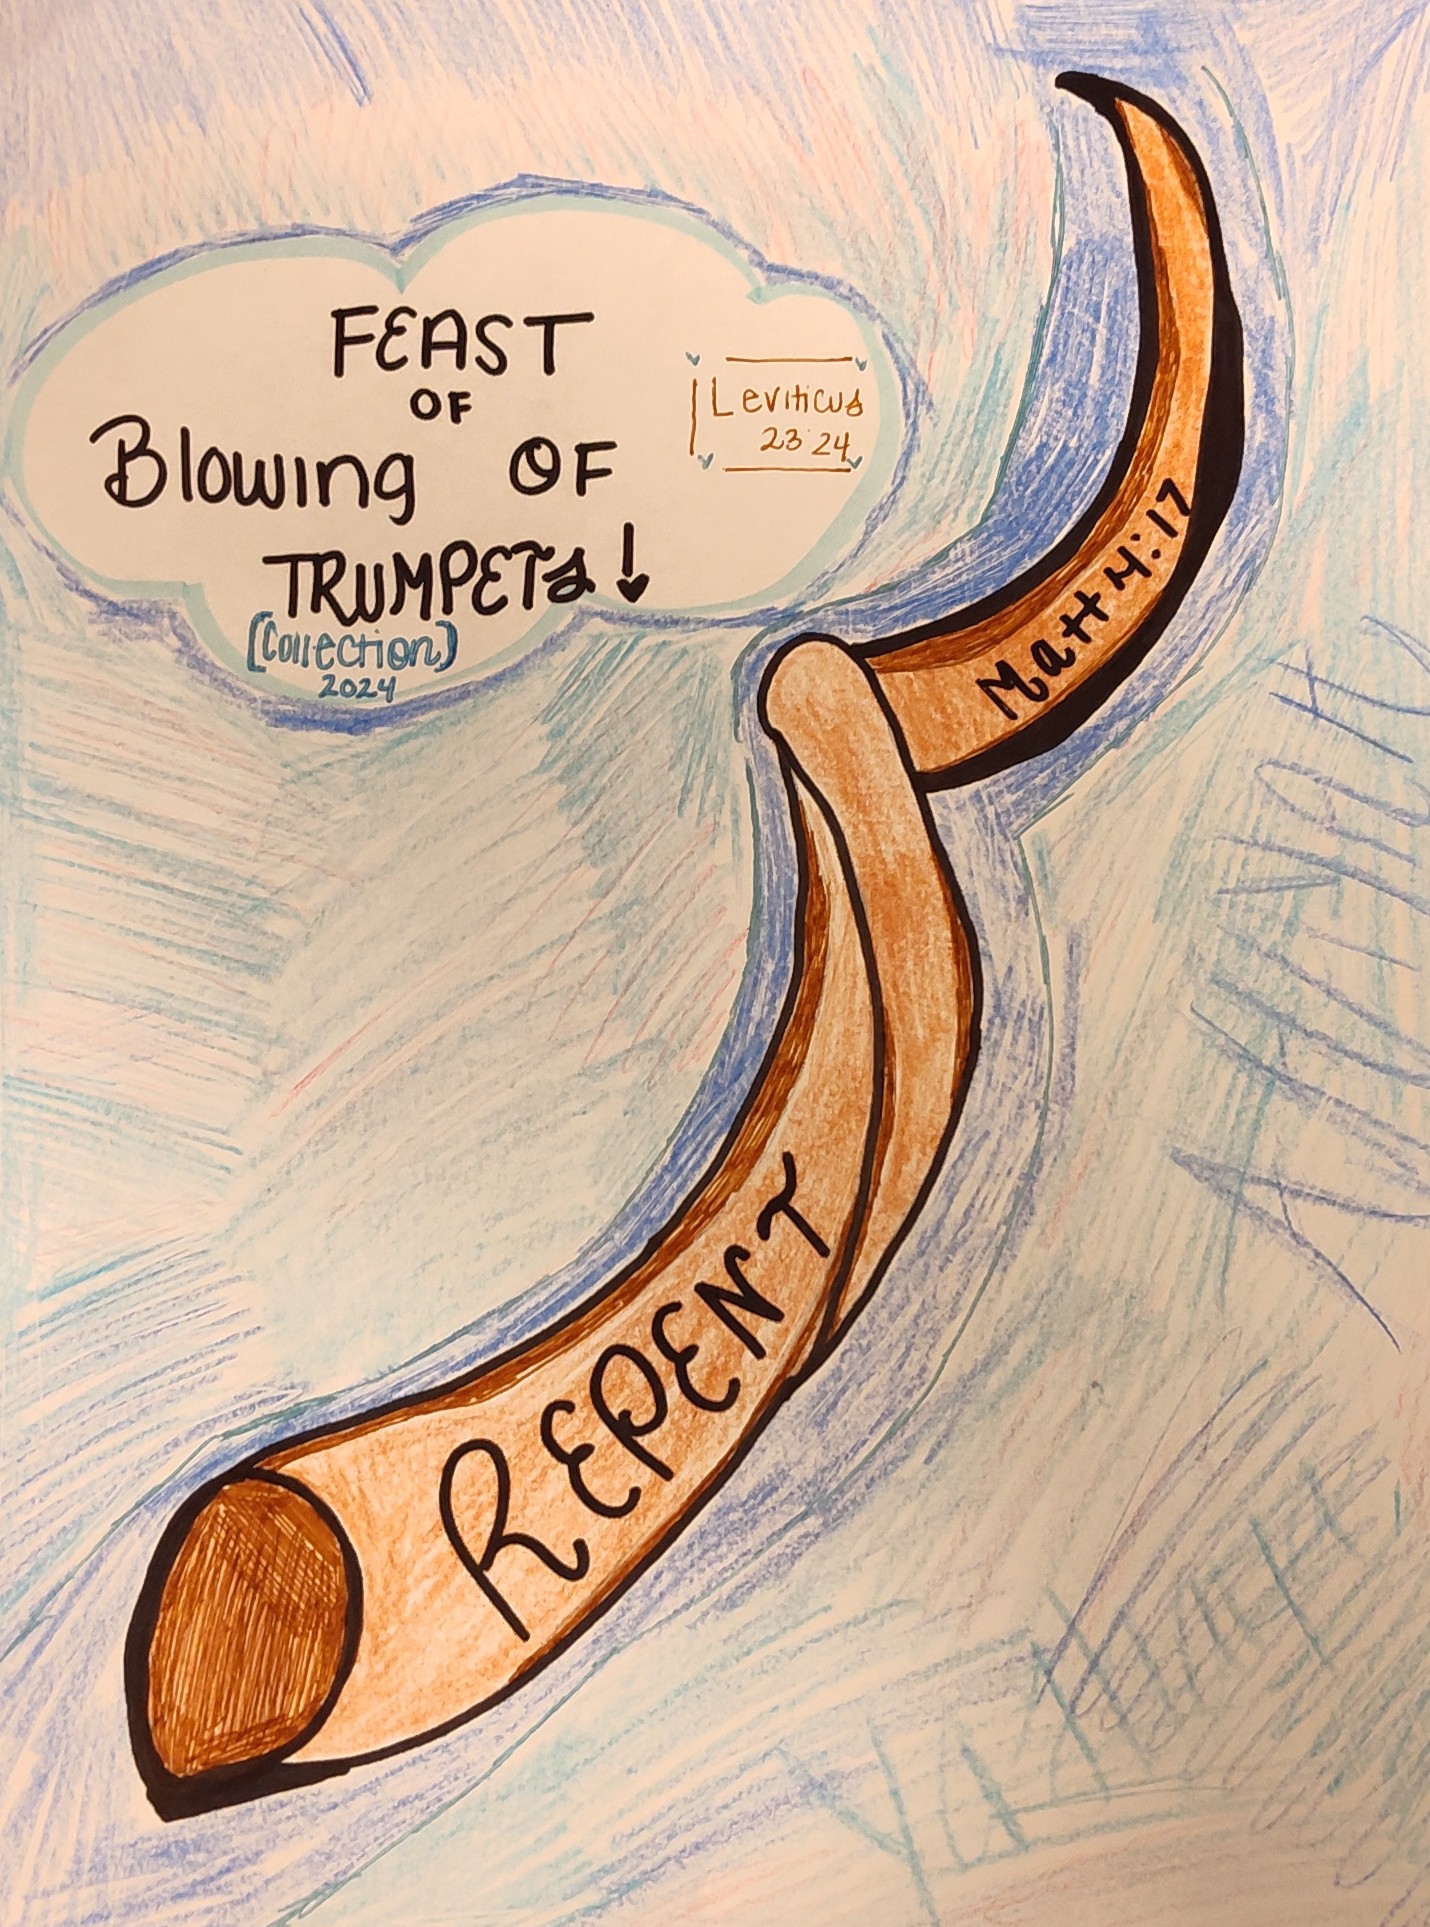 FEAST
OF
Blowing OF
TRUMPETS!
[Collection]
2024
Leviticus
23:24
Matt 4:17
REPENT
ADONAI
YAHWEH